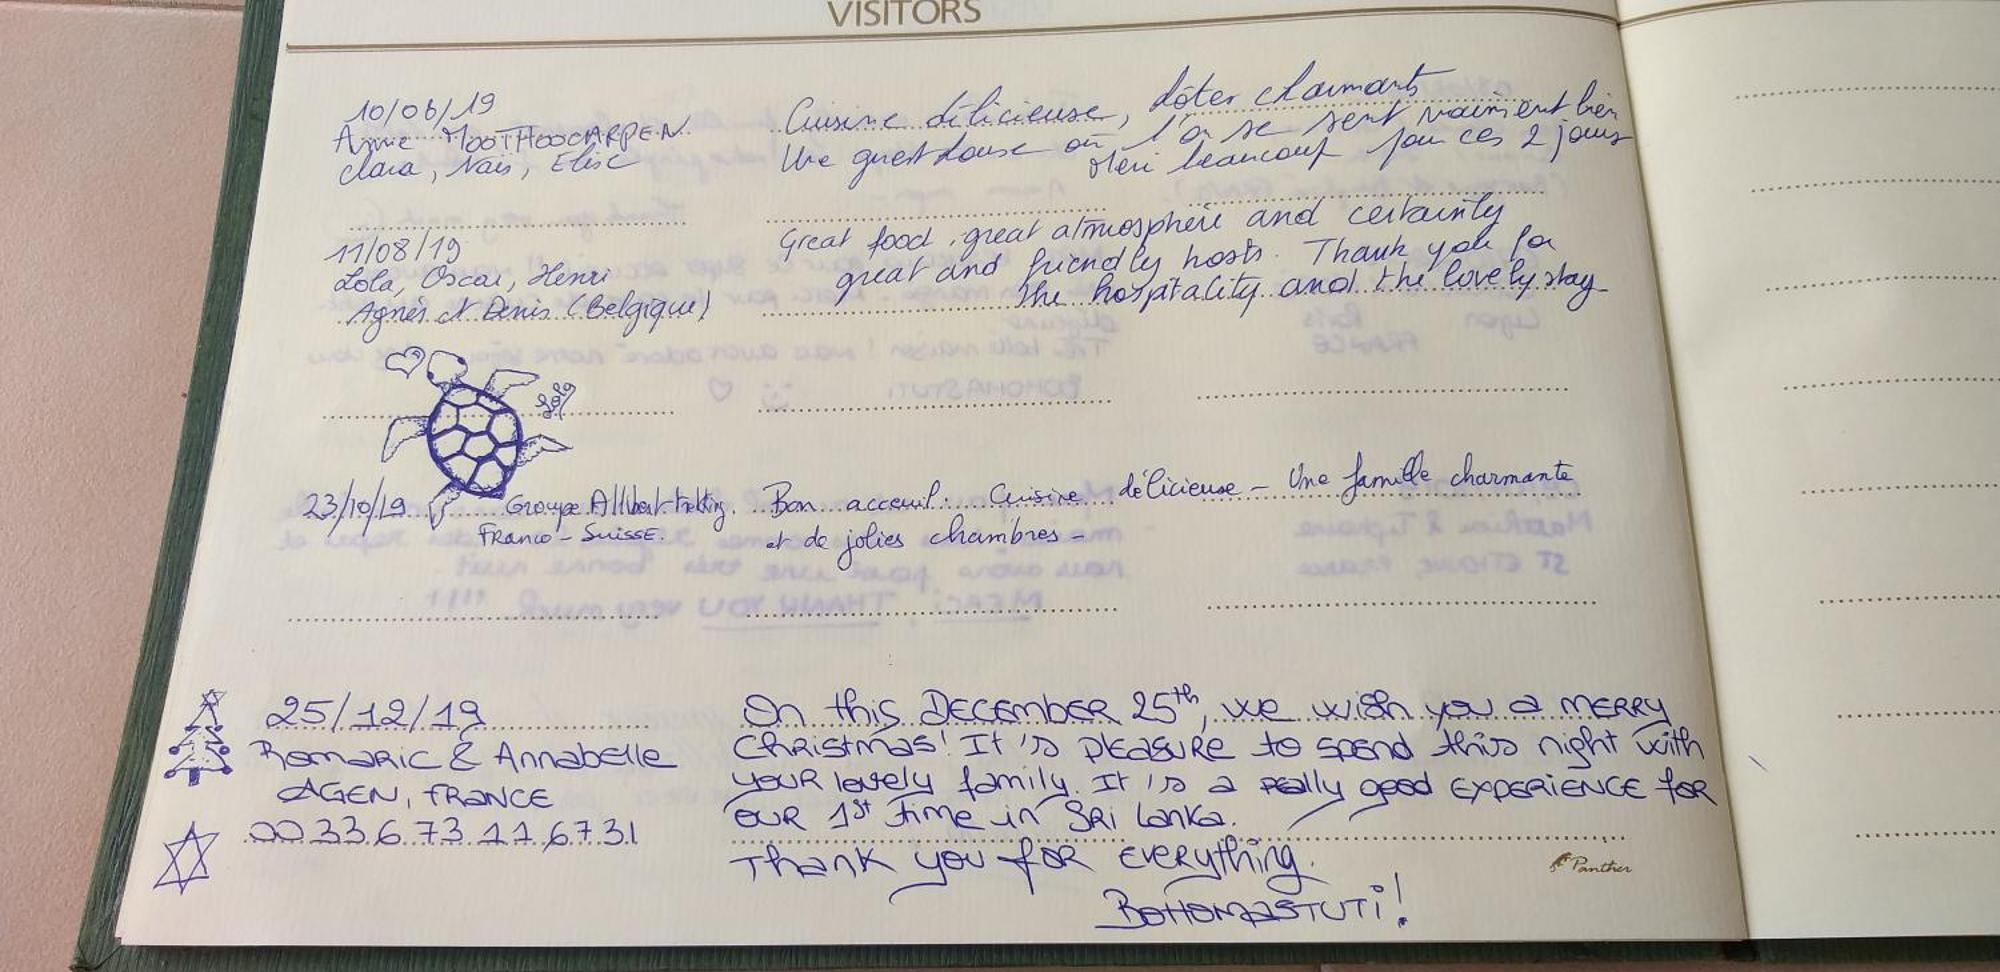 VISITORS
10/08/19
Annie MOOTHOOCARPEN
Clara, Naïs, Elise
Cuisine délicieuse, hôtes charmants
Une guest house où l'on se sent vraiment bien
Merci beaucoup pour ces 2 jours
11/08/19
Lola, Oscar, Henri
Agnès et Denis (Belgique)
Great food, great atmosphere and certainly
great and friendly hosts. Thank you for
the hospitality and the lovely stay
Lola
23/10/19 Groupe Allibert-trekking.
Franco-Suisse.
Bon acceuil. Cuisine délicieuse - Une famille charmante
et de jolies chambres -
25/12/19
Romaric & Annabelle
AGEN, FRANCE
00 33 6 73 11 67 31
On this DECEMBER 25th, we wish you a MERRY
Christmas! It's pleasure to spend this night with
your lovely family. It's a really good EXPERIENCE for
our 1st time in Sri Lanka.
Thank you for everything.
BOHOMASTUTI!
Panther